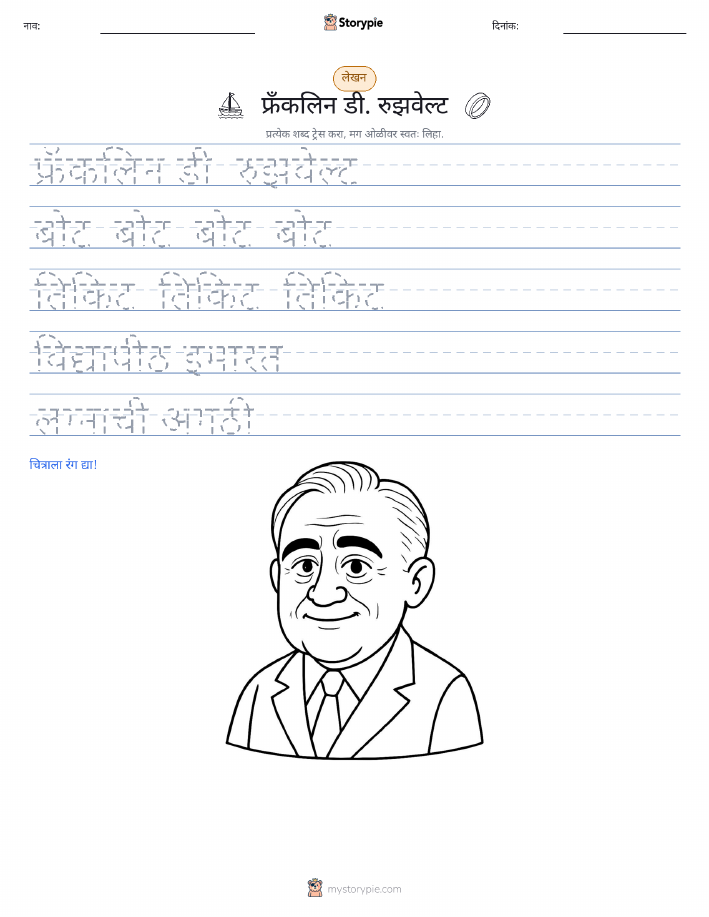 नाव:
Storypie
दिनांक:
लेखन
फ्रँकलिन डी. रुझवेल्ट
प्रत्येक शब्द ट्रेस करा, मग ओळीवर स्वतः लिहा.
फ्रँकलिन डी रुझवेल्ट
बोट बोट बोट बोट
तिकिट तिकिट तिकिट
विद्यापीठ इमारत
लग्नाची अंगठी
चित्राला रंग द्या!
mystorypie.com